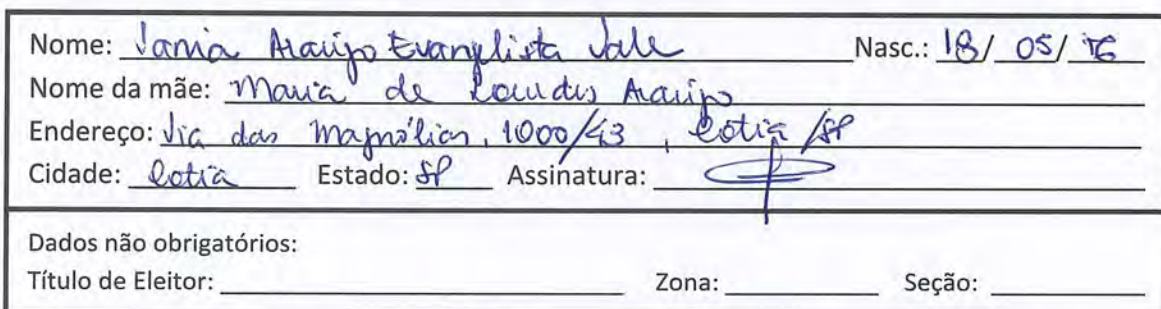 Nome: Vania Araújo Evangelista Vale Nasc.: 18/ 05/ 76
Nome da mãe: Maria de Lourdes Araújo
Endereço: Via das Magnólias, 1000/43, Cotia /SP
Cidade: Cotia Estado: SP Assinatura:
Dados não obrigatórios:
Título de Eleitor: Zona: Seção: